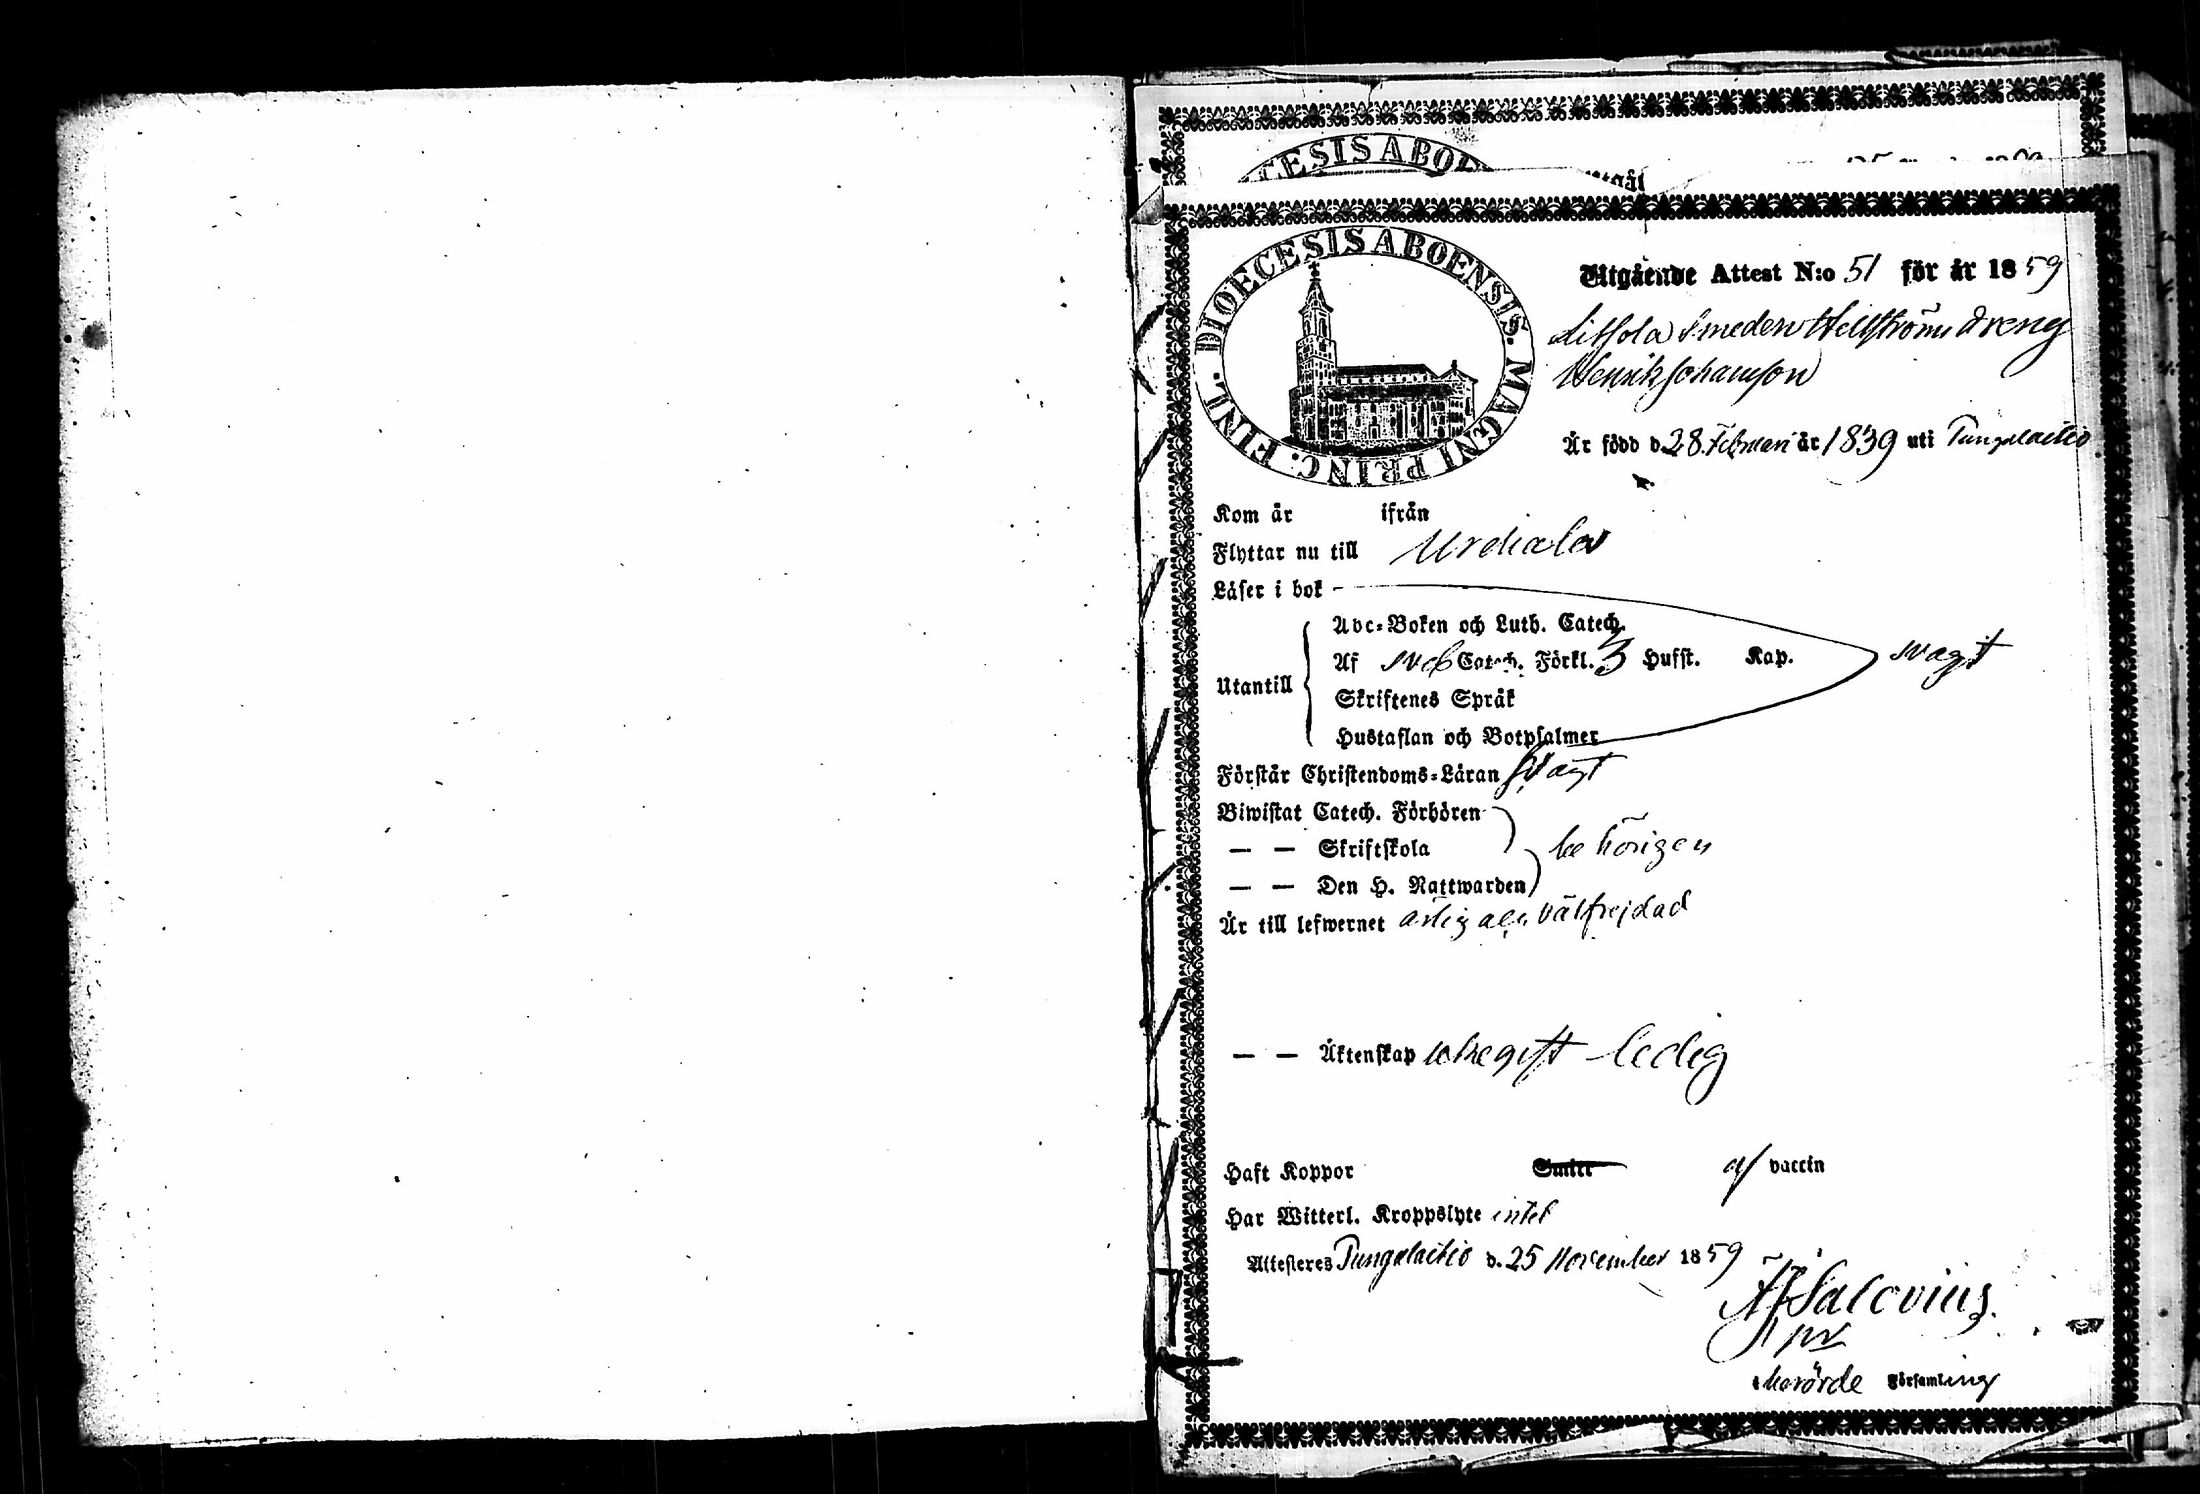 CESIS ABOE
DIOECESIS ABOENSIS. MAGNI PRINC. FINL.
Utgående Attest N:o 51 för år 1859
smeden Hellströms dreng
Henrik Johansson
Är född d. 28 Februari år 1839 uti Pungalaitio
Kom år ifrån
Flyttar nu till Urdiala
Läser i bok
Abc-Boken och Luth. Catech.
Af Sveb Catech. Förkl. 3 Hufst. Kap. svagt
Utantill
Skriftenes Språk
Hustaflan och Botpsalmer
Förstår Christendoms-Läran svagt
Biwistat Catech. Förhören
— — Skriftskola behörigen
— — Den H. Nattwarden
Är till lefwernet ärlig och välfrejdad
— — Äktenskap obegift ledig
Haft Koppor Smitt af vaccin
Har Witterl. Kroppslyte intet
Attesteres Pungalaitio d. 25 November 1859
Salovius.
pv
Församling